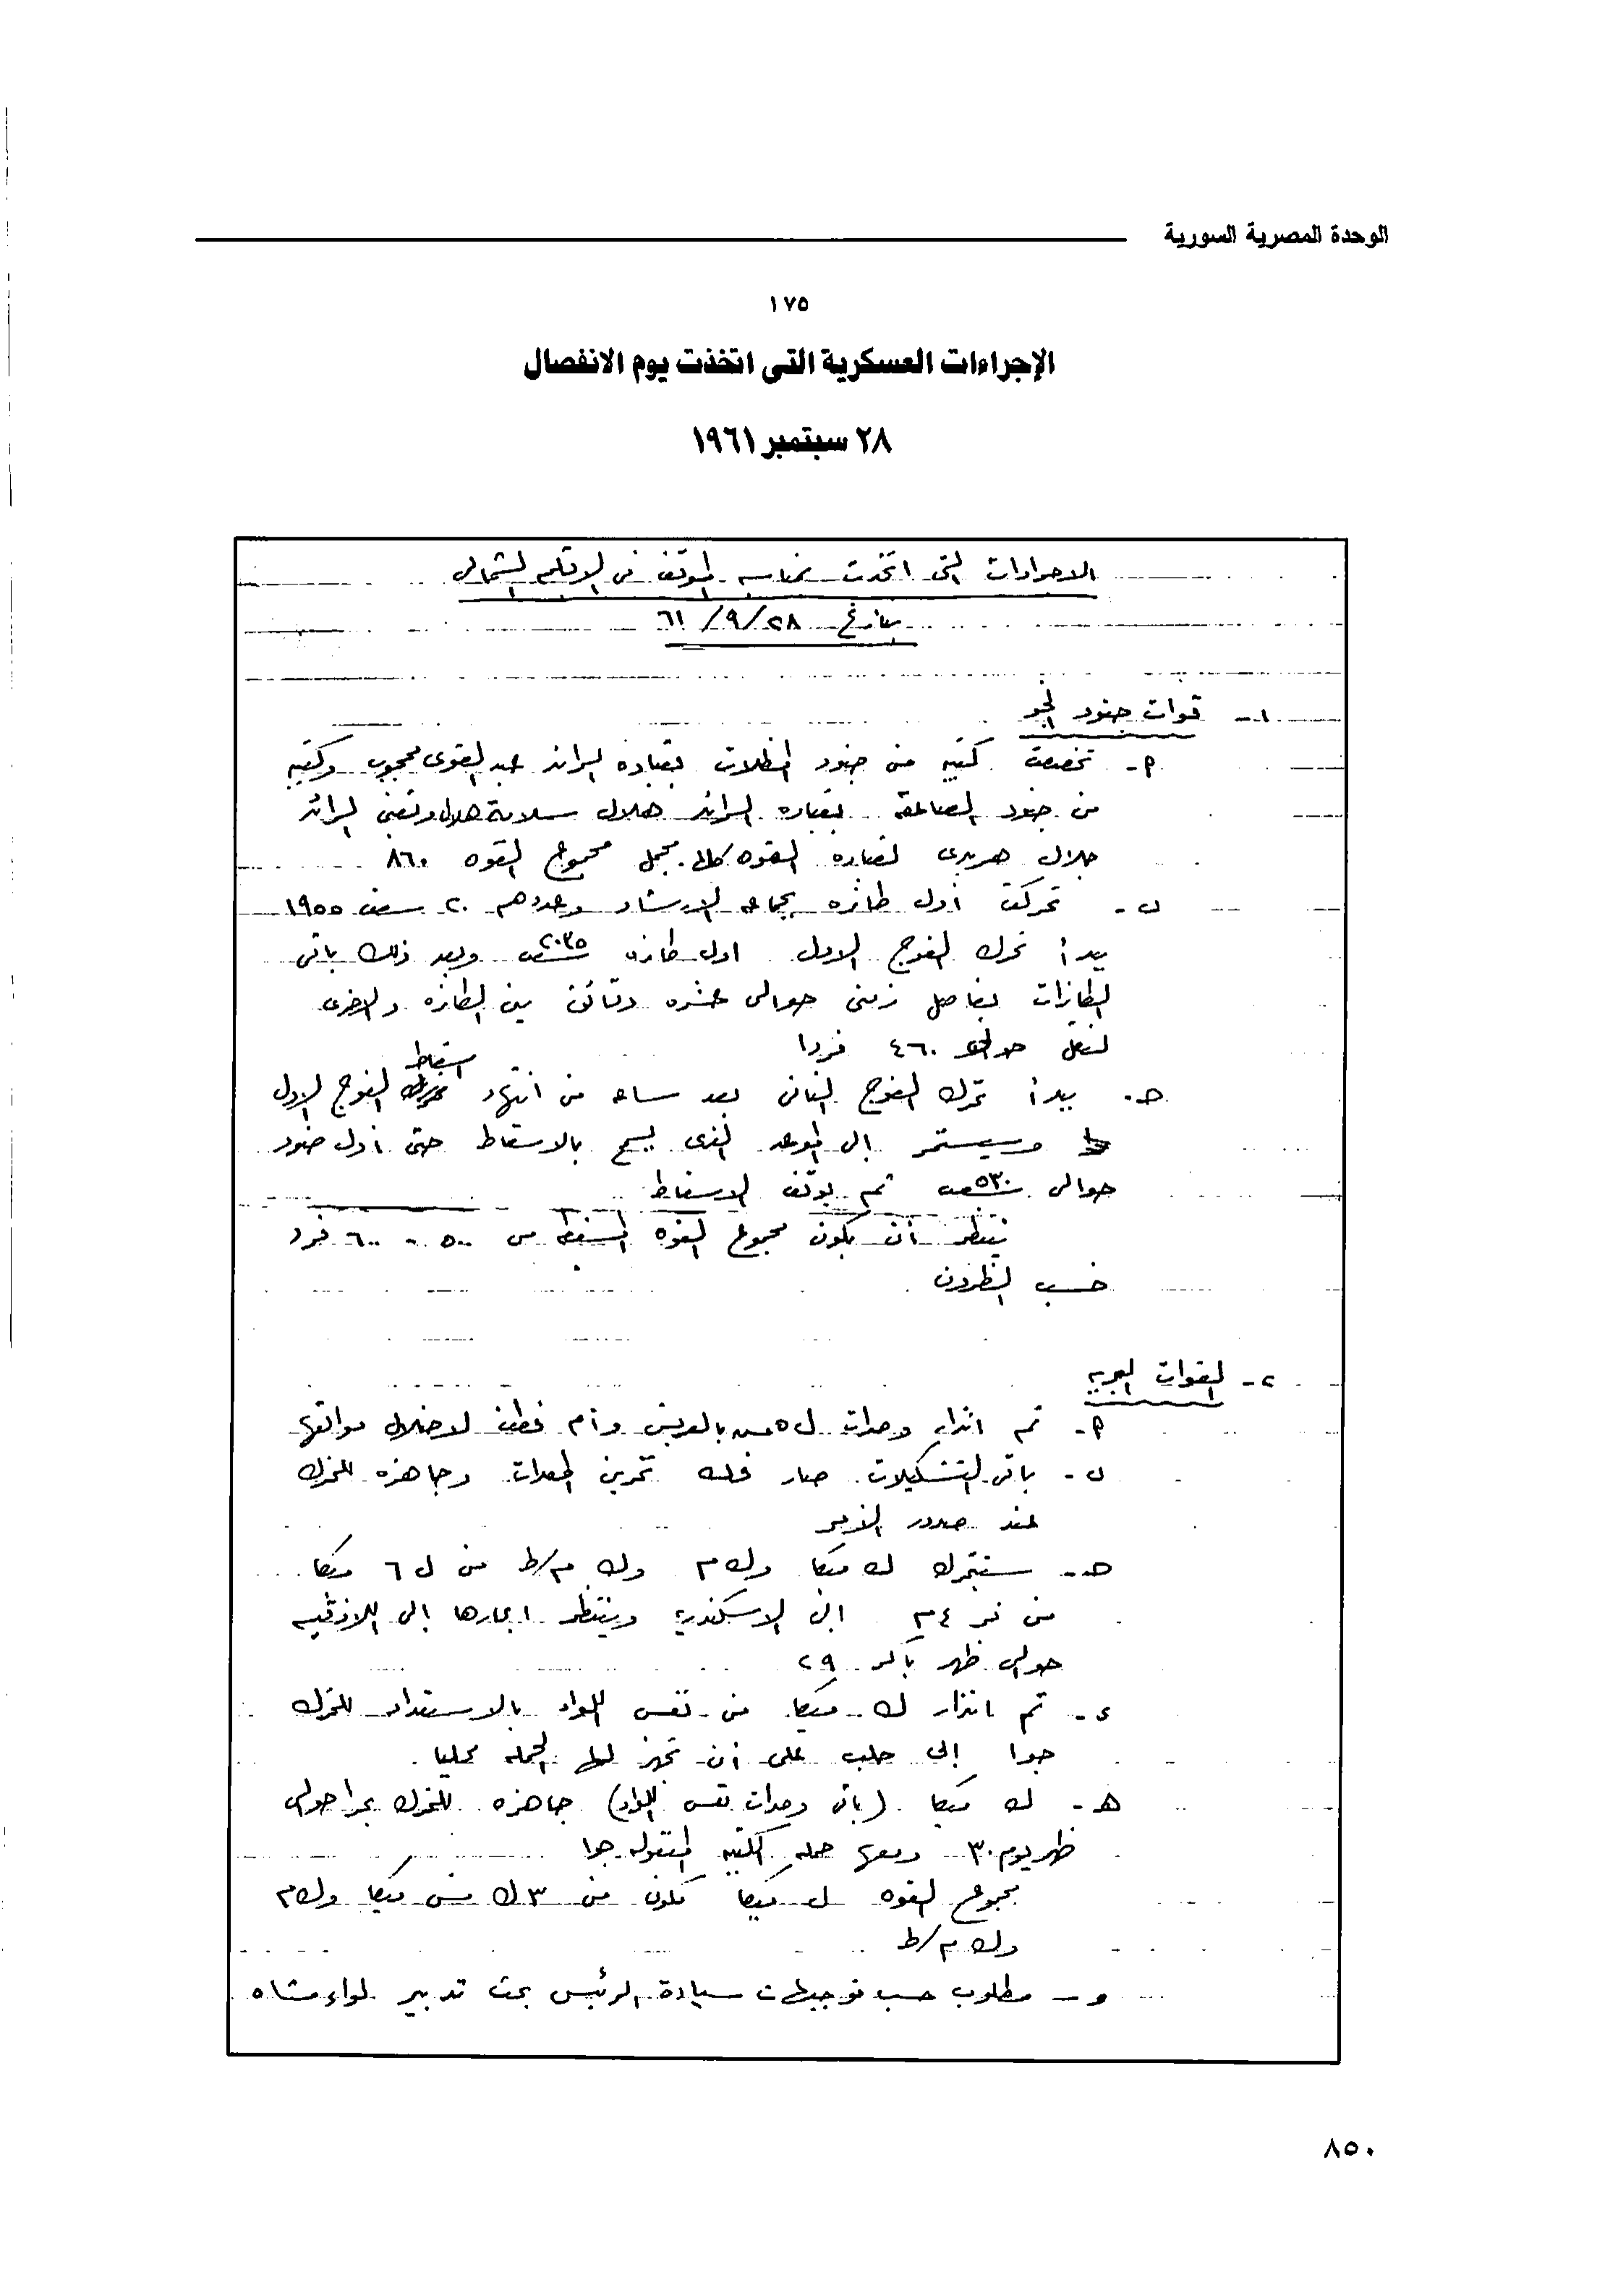 الوحدة المصرية السورية
١٧٥
الإجراءات العسكرية التى اتخذت يوم الانفصال
٢٨ سبتمبر ١٩٦١
الاجراءات التى اتخذت بمناسبه الموقف فى الاقليم الشمالى
بتاريخ ٢٨/٩/٦١
١- قوات جنود الجو
أ- تخصصت كتيبه من جنود المظلات بقياده الرائد عبد القوى محجوب وكتيبه
من جنود الصاعقه بقياده الرائد هلال سلامة هلال وتعين الرائد
جلال هريدى لقياده القوه كلها. مجمل مجموع القوه ٨٦٠
ب- تحركت أول طائره بجماعه الارشاد وعددهم ٢٠ سعت ١٩٥٥
يبدأ تحرك الفوج الاول اول طائره سعت ٢٠٣٥ وبعد ذلك باقى
الطائرات بفاصل زمنى حوالى عشره دقائق بين الطائره والاخرى
لنقل حوالى ٤٦٠ فردا
حـ- يبدأ تحرك الفوج الثانى بعد ساعه من انتهاء اسقاط الفوج الاول
وسيستمر إلى الموعد الذى يسمح بالاسقاط حتى أول ضوء
حوالى سعت ٥٣٠ ثم يوقف الاسقاط
ينتظر أن يكون مجموع القوه المسقطه من ٥٠٠ - ٦٠٠ فرد
حسب الظروف
٢- القوات البريه
أ- تم انذار وحدات ل٥ بالعريش و لاحتلال مواقعها
ب- باقى التشكيلات صار فك تخزين المعدات وجاهزه للتحرك
عند صدور الأمر
حـ- ستتحرك ك ميكا وك م وك م/ط من ل ٦ ميكا
من إلى الاسكندريه وينتظر ابحارها إلى اللاذقيه
حوالى ظهر باكر ٢٩
د- تم انذار ك ميكا من نفس اللواء بالاستعداد للتحرك
جوا إلى حلب على أن تجهز لها الحمله محليا.
هـ- ك ميكا (باقى وحدات نفس اللواء) جاهزه للتحرك بحرا حوالى
ظهر يوم ٣٠ ومعها حمله الكتيبه المنقوله جوا
مجموع القوه ل ميكا مكون من ٣ك ميكا وك م
وك م/ط
و- مطلوب حسب توجيهات سيادة الرئيس بحث تدبير لواء مشاه
٨٥٠